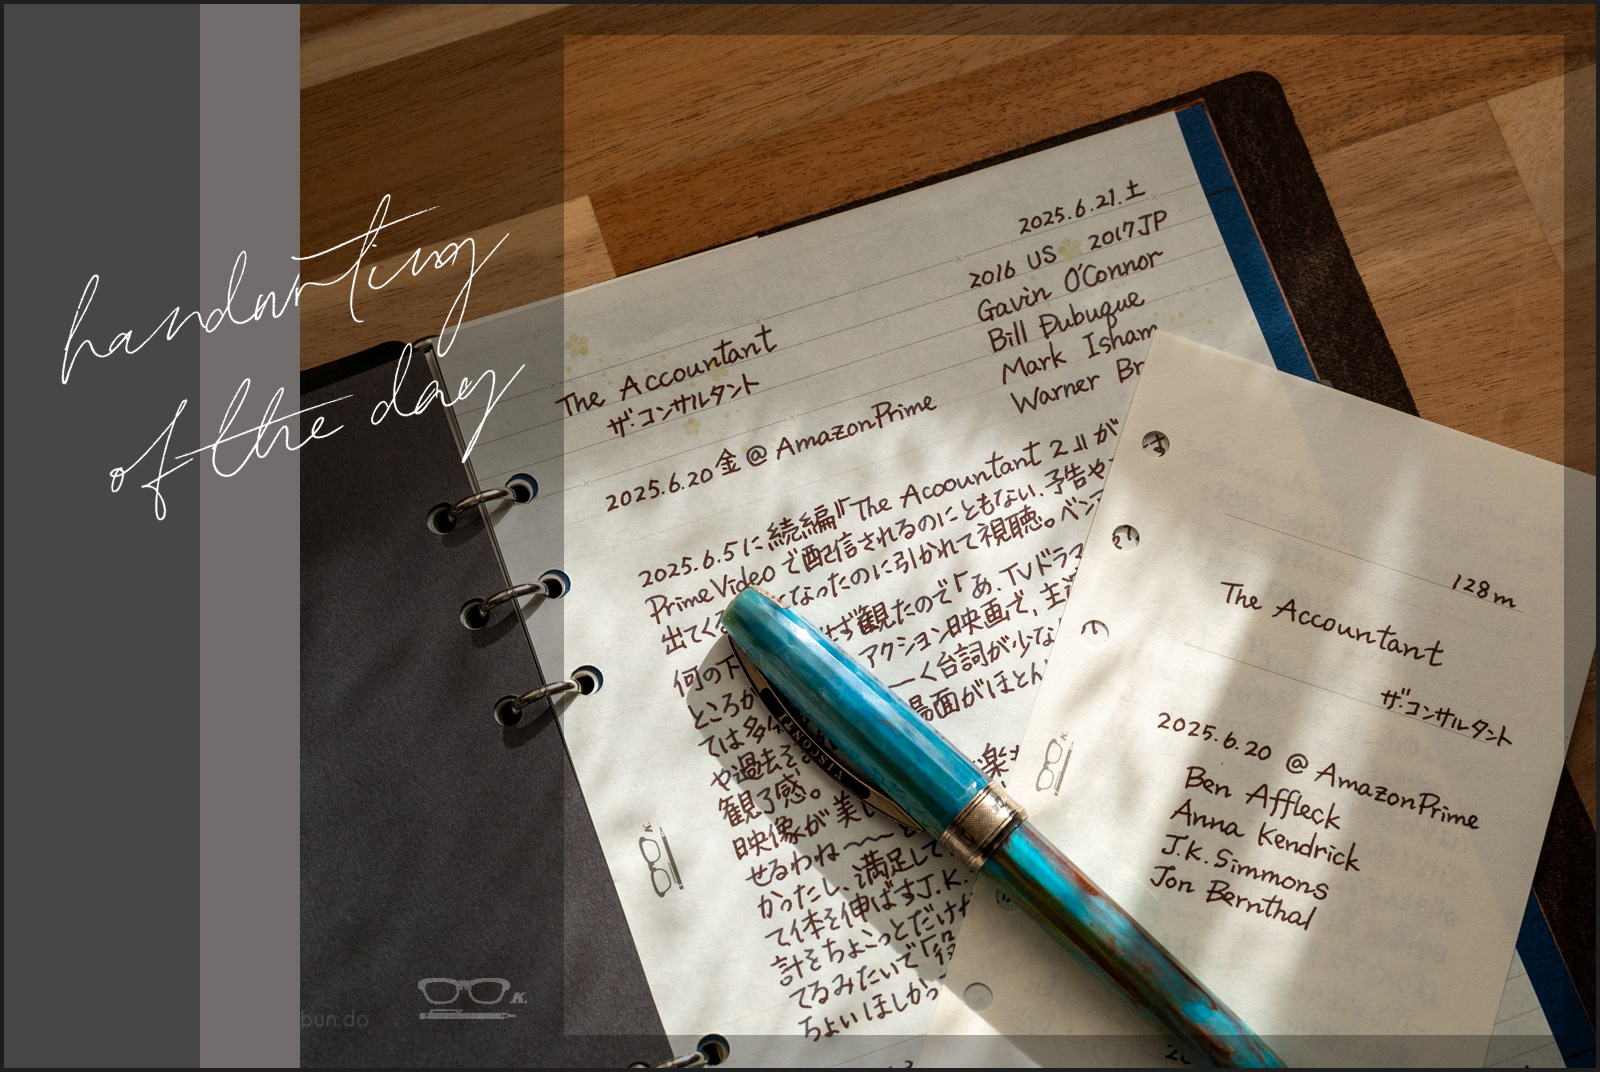 handwriting
of the day
2025.6.21.土
2016 US 2017JP
Gavin O'Connor
Bill Dubuque
Mark Isham
Warner Br
The Accountant
ザ・コンサルタント
2025.6.20 金 @ AmazonPrime
2025.6.5に続編『The Acoountant 2』が
PrimeVideoで配信されるのにともない、予告や
出てくる なったのに引かれて視聴。ベン
何の下 せず観たので「あ、TVドラマ
ところが アクション映画で、主
ては多 く台詞が少な
や過去 場面がほとん
観了感。 楽
映像が美し
せるわね〜〜
かったし、満足して
て体を伸ばすJ.K.
計をちょこっとだけ
てるみたいで
ちょいほしかっ
128m
The Accountant
ザ・コンサルタント
2025.6.20 @ AmazonPrime
Ben Affleck
Anna Kendrick
J.K. Simmons
Jon Bernthal
VISCONTI
K.
bun.do